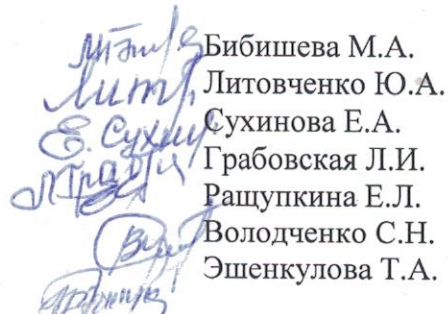 Бибишева М.А.
Литовченко Ю.А.
Е. Сухин Сухинова Е.А.
Грабовская Л.И.
Ращупкина Е.Л.
Володченко С.Н.
Эшенкулова Т.А.